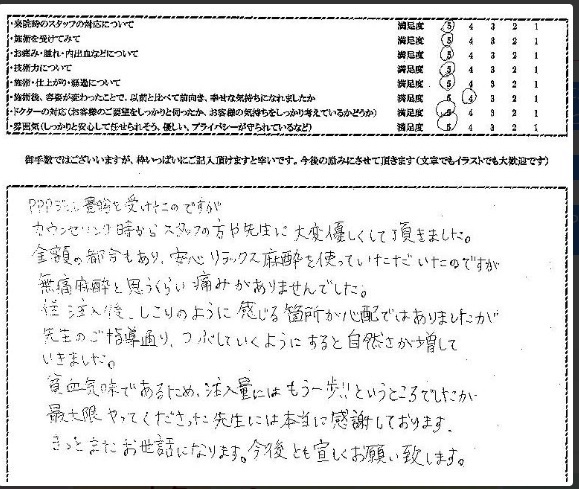 ・来院時のスタッフの対応について 満足度 5 4 3 2 1
・施術を受けてみて 満足度 5 4 3 2 1
・お痛み・腫れ・内出血などについて 満足度 5 4 3 2 1
・技術力について 満足度 5 4 3 2 1
・施術・仕上がり・経過について 満足度 5 4 3 2 1
・施術後、容姿が変わったことで、以前と比べて前向き、幸せな気持ちになれましたか 満足度 5 4 3 2 1
・ドクターの対応(お客様のご要望をしっかりと伺ったか、お客様の気持ちをしっかり考えているかどうか) 満足度 5 4 3 2 1
・雰囲気(しっかりと安心して任せられそう、優しい、プライバシーが守られているなど) 満足度 5 4 3 2 1
御手数ではございいますが、枠いっぱいにご記入頂けますと幸いです。今後の励みにさせて頂きます(文章でもイラストでも大歓迎です)
PPPジェル豊胸を受けたのですが
カウンセリング時からスタッフの方や先生に大変優しくして頂きました。
金額の都合もあり、安心リラックス麻酔を使っていただいたのですが
無痛麻酔と思うくらい痛みがありませんでした。
注入後、しこりのように感じる箇所が心配ではありましたが
先生のご指導通り、つぶしていくようにすると自然さが増して
いきました。
貧血気味であるため、注入量にはもう一歩!!というところでしたが
最大限やってくださった先生には本当に感謝しております。
きっとまたお世話になります。今後とも宜しくお願い致します。